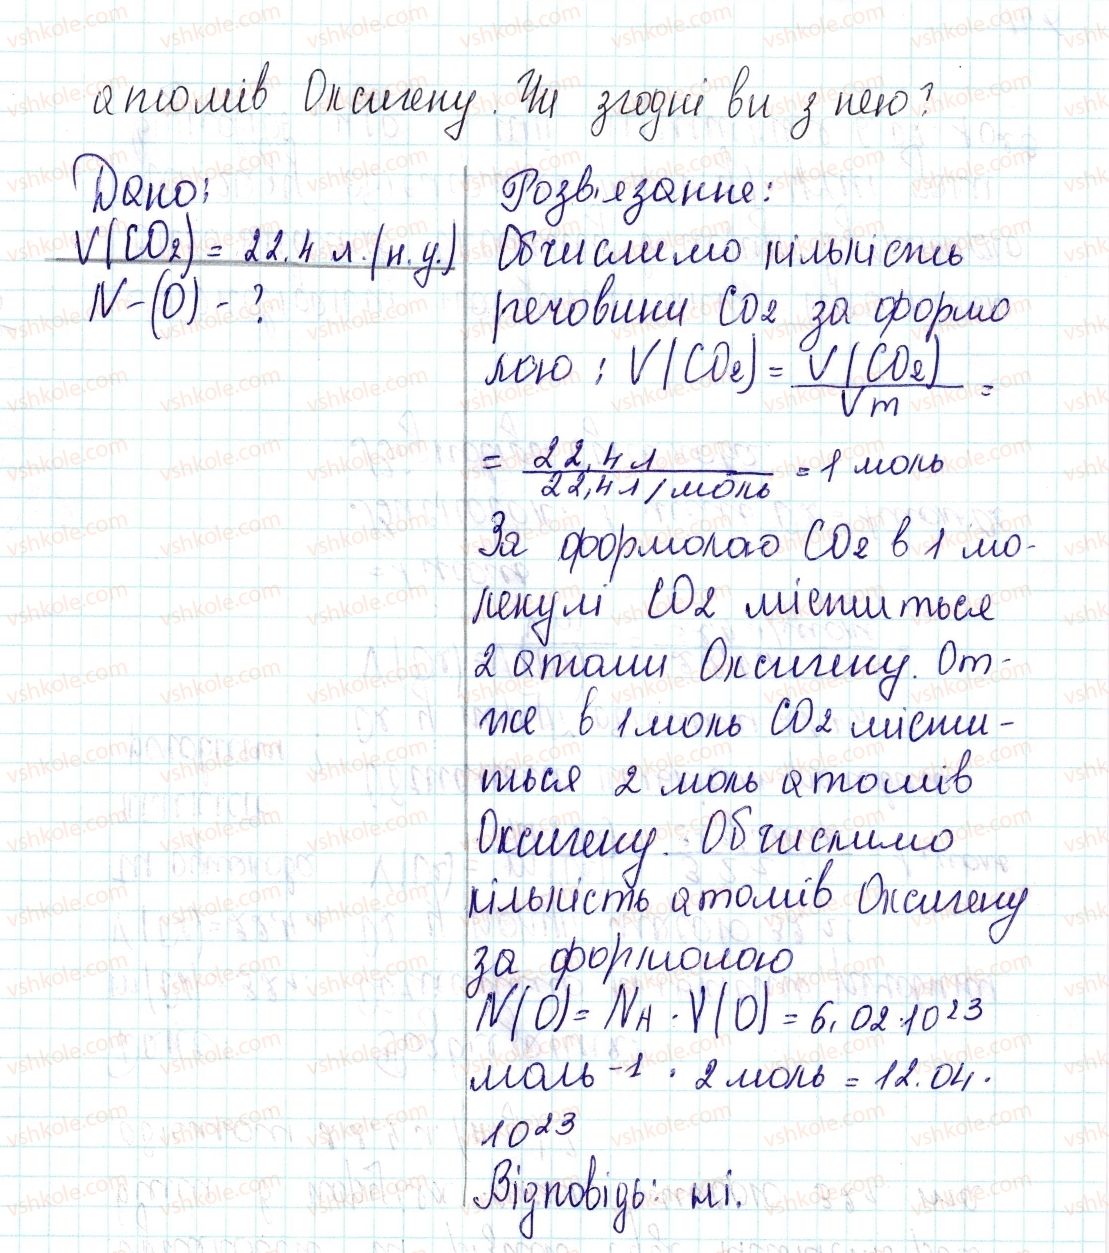 атомів Оксигену. Чи згодні ви з нею?
Дано:
V(CO2) = 22.4 л.(н.у.)
N-(O) - ?
Розв'язання:
Обчислимо кількість
речовини CO2 за формо
лою : V(CO2) = V(CO2) / Vm =
= 22,4 л / 22,4 л/моль = 1 моль
За формолаю CO2 в 1 мо-
лекулі CO2 міститься
2 атоми Оксигену. От-
же в 1 моль CO2 місти-
ться 2 моль атомів
Оксигену. Обчислимо
кількість атомів Оксигену
за формолою
N(O) = NA · V(O) = 6,02·10²³
моль⁻¹ · 2 моль = 12.04·
10²³
Відповідь: ні.